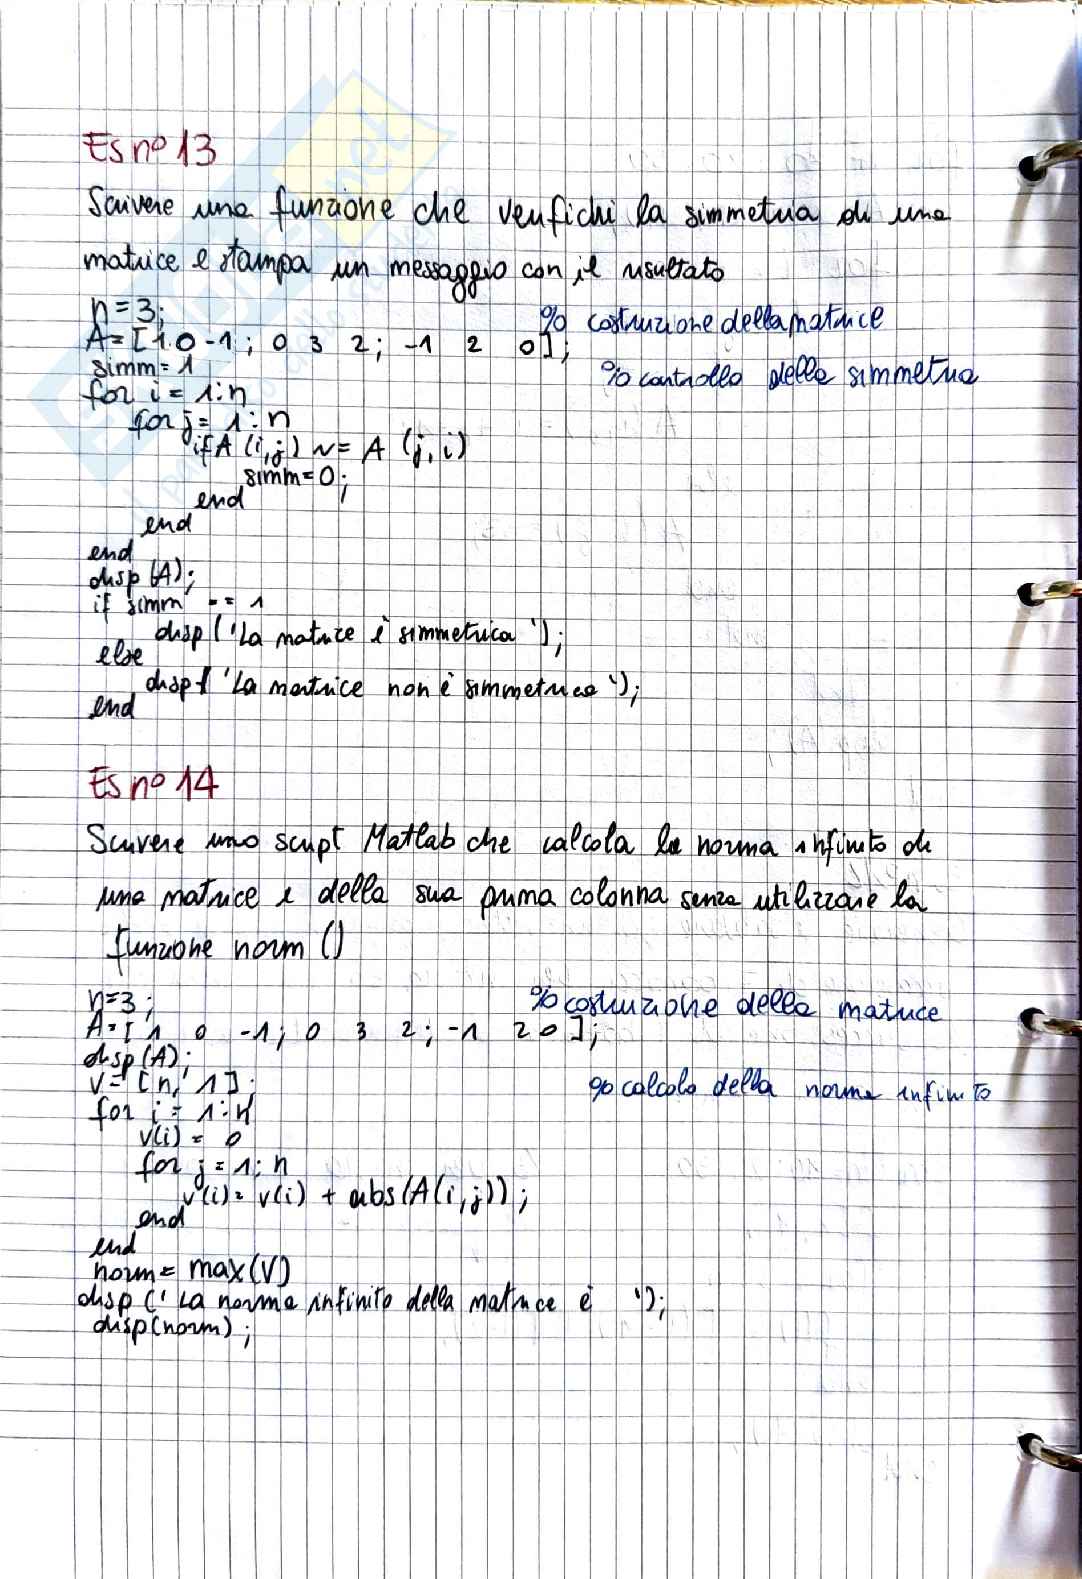 Es nº 13
Scrivere una funzione che verifichi la simmetria di una
matrice e stampa un messaggio con il risultato
n=3;
% costruzione della matrice
A=[1 0 -1; 0 3 2; -1 2 0];
simm=1
% controllo della simmetria
for i = 1:n
for j = 1:n
if A (i,j) ~= A (j,i)
simm=0;
end
end
end
disp(A);
if simm == 1
disp('La matrice è simmetrica');
else
disp('La matrice non è simmetrica');
end
Es nº 14
Scrivere uno script Matlab che calcola la norma infinito di
una matrice e della sua prima colonna senza utilizzare la
funzione norm ()
n=3;
% costruzione della matrice
A=[ 1 0 -1; 0 3 2; -1 2 0 ];
disp(A);
v= [n, 1];
% calcolo della norma infinito
for i = 1:n
v(i) = 0
for j = 1:n
v(i)= v(i) + abs(A(i,j));
end
end
norm= max(V)
disp (' La norma infinito della matrice è ');
disp(norm);